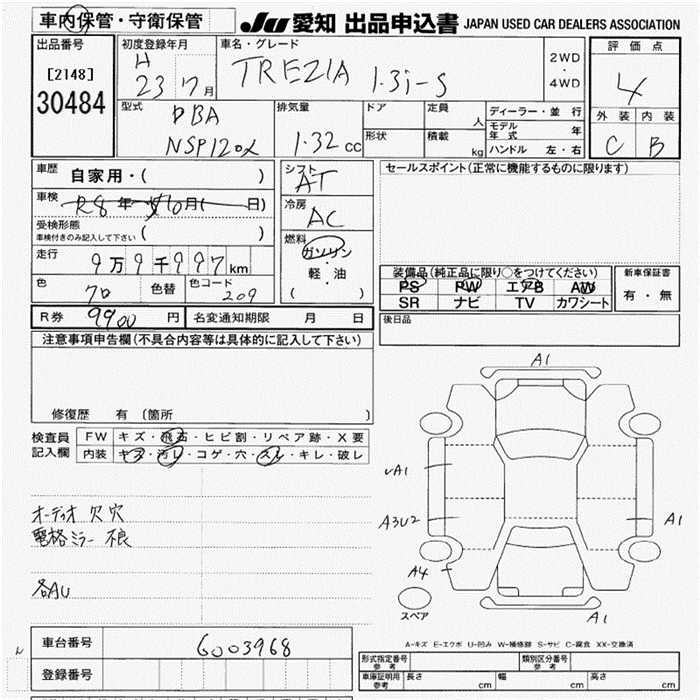 車内保管・守衛保管
JU 愛知 出品申込書 JAPAN USED CAR DEALERS ASSOCIATION
出品番号
[2148]
30484
初度登録年月
H
23 7月
車名・グレード
TREZIA 1.3i-S
2WD
・
4WD
評価点
4
外装 内装
C B
型式
DBA
排気量
1.32 cc
ドア
定員
人
形状
積載
kg
ディーラー・並 行
モデル年式 年
ハンドル 左・右
車歴
自家用・( )
車検
受検形態
車検付きのみ記入して下さい ( )
走行
9万9千997km
色
クロ
色替
色コード
209
シフト
AT
冷房
AC
燃料
ガソリン
・
軽・油
( )
セールスポイント(正常に機能するものに限ります)
装備品(純正品に限り○をつけてください)
PS PW エアB AW
SR ナビ TV カワシート
新車保証書
有・無
R券 9900 円
名変通知期限 月 日
後日品
注意事項申告欄(不具合内容等は具体的に記入して下さい)
修復歴 有 [箇所 ]
検査員
記入欄
FW キズ・飛石・ヒビ割・リペア跡・X要
内装 キズ・汚レ・コゲ・穴・スレ・キレ・破レ
オーディオ 欠 穴
電格ミラー 不良
各AU
A1
A1
A3U2
A1
A4
スペア
A1
A-キズ E-エクボ U-凹み W-補修跡 S-サビ C-腐食 XX-交換済
車台番号 6003968
登録番号
形式指定番号
参考
類別区分番号
参考
車庫証明用
参考
長さ cm
幅 cm
高さ cm